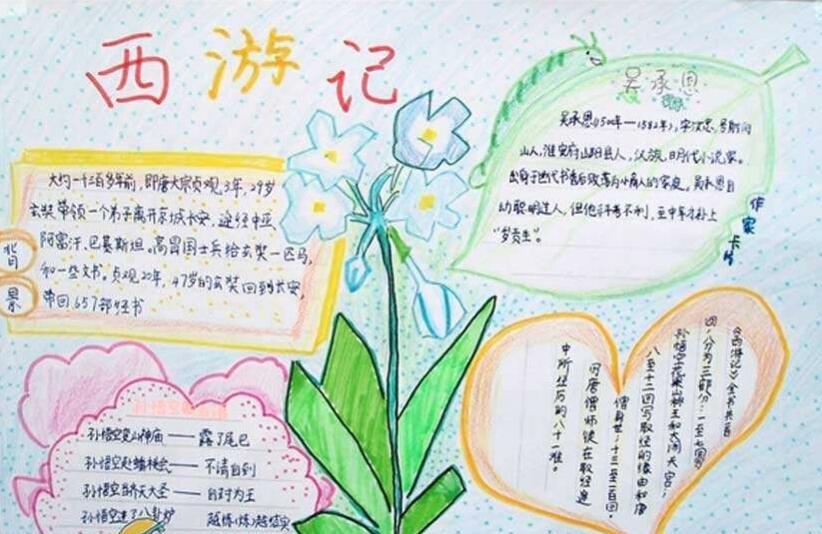 西游记
背景
大约一千三百多年前,即唐太宗贞观3年,29岁
玄奘带领一个弟子离开京城长安,途经中亚、
阿富汗、巴基斯坦。高昌国士兵给玄奘一匹马,
和一些文书。贞观20年,47岁的玄奘回到长安,
带回657部经书
吴承恩
作家卡片
吴承恩(1500年—1582年),字汝忠,号射阳
山人,淮安府山阳县人,汉族,明代小说家。
幼聪明过人,但他科考不利,至中年才补上
"岁贡生"。
孙悟空变山神庙——露了尾巴
孙悟空赴蟠桃会——不请自到
孙悟空自称齐天大圣——自封为王
孙悟空进了八卦炉 越炼(炼)越结实
《西游记》全书共百
回,分为三部分:一至七回写
孙悟空花果山称王和大闹天宫;
八至十二回写取经的缘由和唐
僧身世;十三至一百回,
写唐僧师徒在取经途
中所经历的八十一难。